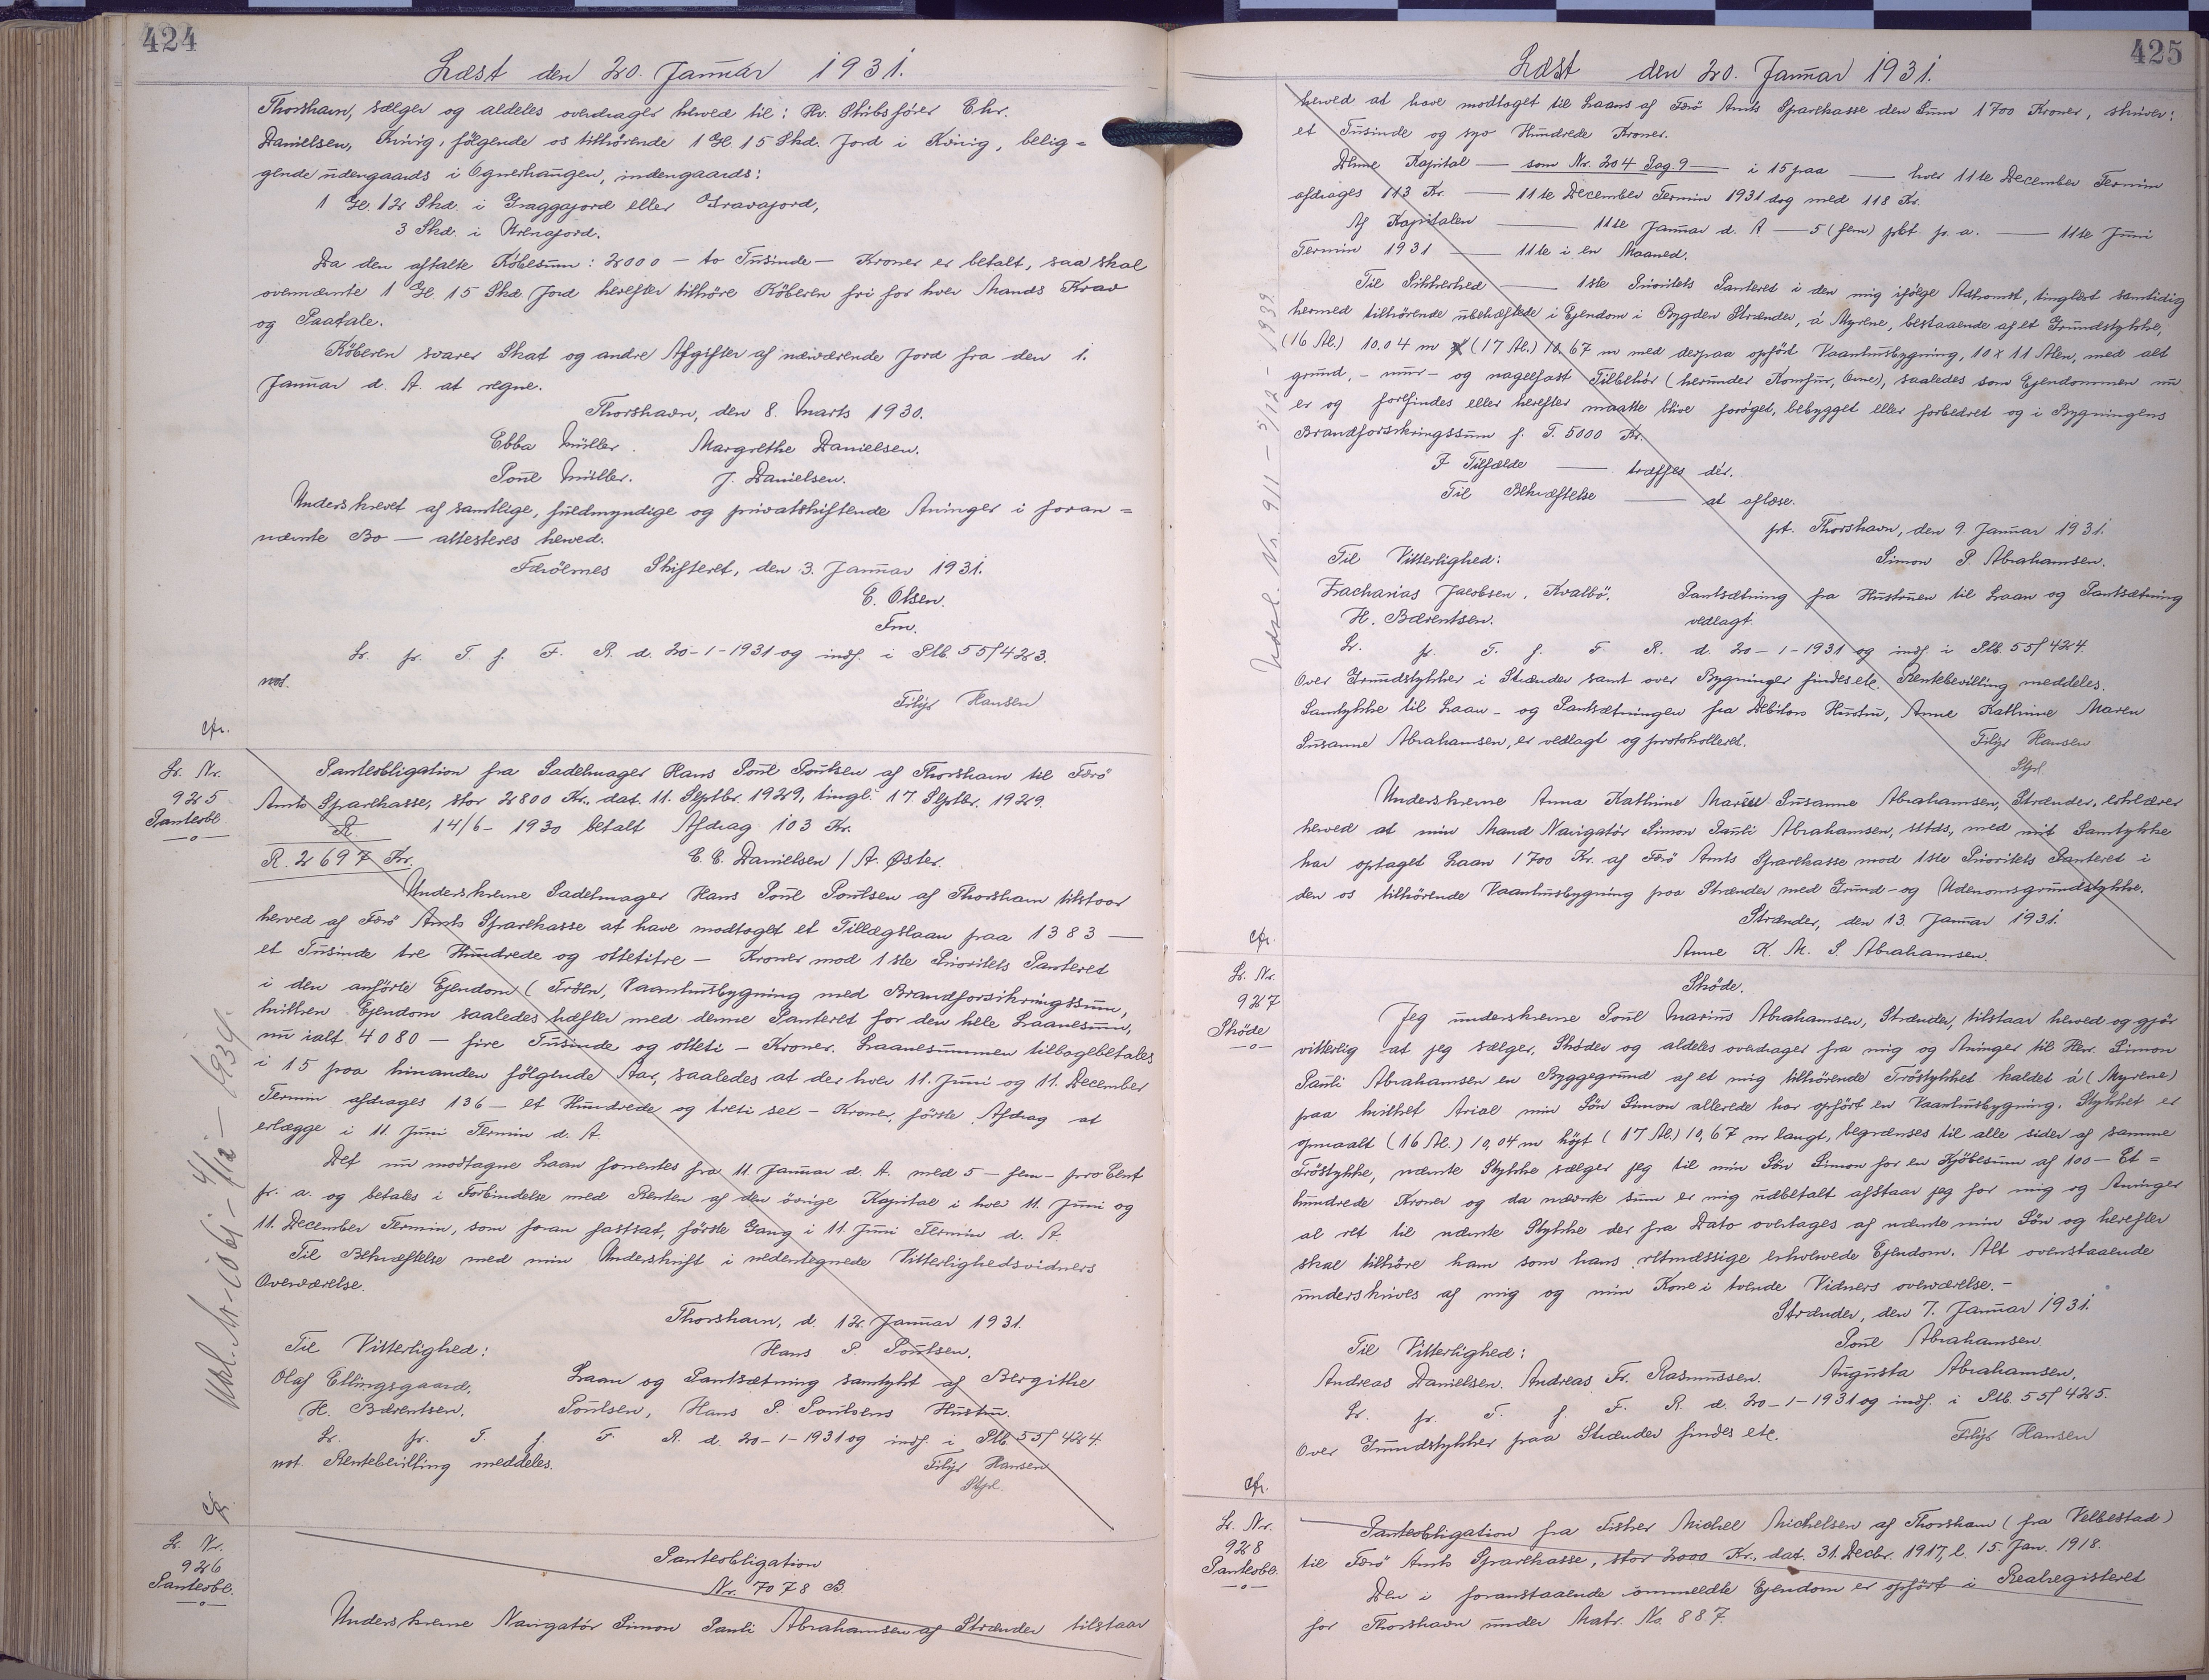 424
Læst den 20. Januar 1931.
Thorshavn, sælger og aldeles overdrager herved til: Hr. Skibsfører Chr.
Danielsen, Kvivig, følgende os tilhørende 1 Gl. 15 Skd. Jord i Kvivig, belig=
gende udengaards i Ognerhaugen, indengaards:
1 Gl. 12 Skd. i Graggajord eller Gravajord,
3 Skd. i Krenajord.
Da den aftalte Købesum: 2000 — to Tusinde — Kroner er betalt, saa skal
ovennævnte 1 Gl. 15 Skd. Jord herefter tilhøre Køberen fri for hver Mands Krav
og Paatale.
Køberen svarer Skat og andre Afgifter af nærværende Jord fra den 1.
Januar d. A. at regne.
Thorshavn, den 8. Marts 1930.
Ebba Müller. Margrethe Danielsen.
Poul Müller. J. Danielsen.
Underskrevet af samtlige, fuldmyndige og privatskiftende Arvinger i foran=
nævnte Bo — attesteres herved.
Færøernes Skifteret, den 3. Januar 1931.
E. Olsen.
Fm.
Lr. fr. T. f. F. R. d. 20-1-1931 og indf. i Ptb. 55/423.
not.
Filip Hansen
cfr.
Lr. Nr.
925
Panteobl.
—o—
Panteobligation fra Sadelmager Hans Poul Poulsen af Thorshavn til Færø
Amts Sparekasse, stor 2800 Kr., dat. 11. Septbr. 1929, tingl. 17. Septbr. 1929.
R. 14/6- 1930 betalt Afdrag 103 Kr.
R. 2697 Kr. C. C. Danielsen / A. Øster.
Underskrevne Sadelmager Hans Poul Poulsen af Thorshavn tilstaar
herved af Færø Amts Sparekasse at have modtaget et Tillægslaan paa 1383 —
et Tusinde tre Hundrede og ottetitre — Kroner mod 1ste Prioritets Panteret
i den anførte Ejendom (Trøen, Vaaningsbygning med Brandforsikringssum,
hvilken Ejendom saaledes hæfter med denne Panteret for den hele Laanesum,
nu ialt 4080 — fire Tusinde og otteti — Kroner. Laanesummen tilbagebetales
i 15 paa hinanden følgende Aar, saaledes at der hver 11. Juni og 11. December
Termin afdrages 136 — et Hundrede og treti sex — Kroner, første Afdrag at
erlægge i 11. Juni Termin d. A.
Det nu modtagne Laan forrentes fra 11. Januar d. A. med 5 — fem — pro Cent
pr. a. og betales i Forbindelse med Renten af den øvrige Kapital i hver 11. Juni og
11. December Termin, som foran fastsat, første Gang i 11. Juni Termin d. A.
Til Bekræftelse med min Underskrift i nedentegnede Vitterlighedsvidners
Overværelse.
Thorshavn, d. 12. Januar 1931.
Til Vitterlighed: Hans P. Poulsen.
Olaf Ellingsgaard, Laan og Pantsætning samtykt af Bergithe
H. Bærentsen. Poulsen, Hans P. Poulsens Hustru.
Lr. fr. T. f. F. R. d. 20-1-1931 og indf. i Ptb. 55/424.
not. Rentebevilling meddeles. Filip Hansen
Stpl.
cfr.
Lr. Nr.
926
Panteobl.
—o—
Panteobligation
Nr. 7078 B.
Underskrevne Navigatør Simon Pauli Abrahamsen af Strænder tilstaar
425
Læst den 20. Januar 1931.
herved at have modtaget til Laans af Færø Amts Sparekasse den Sum 1700 Kroner, skriver:
et Tusinde og syv Hundrede Kroner.
Denne Kapital — som Nr. 204 Pag. 9 — i 15 paa — hver 11te December Termin
afdrages 113 Kr. — 11te December Termin 1931 dog med 118 Kr.
Af Kapitalen — 11te Januar d. A — 5 (fem) pCt. pr. a. — 11te Juni
Termin 1931 — 11te i en Maaned.
Til Sikkerhed — 1ste Prioritets Panteret i den mig ifølge Adkomst, tinglæst samtidig
hermed tilhørende ubehæftede i Ejendom i Bygden Strænder, á Myrene, bestaaende af et Grundstykke,
(16 Al.) 10.04 m (17 Al.) 10,67 m med derpaa opført Vaaningsbygning, 10 x 11 Alen, med alt
grund, - mur- og nagelfast Tilbehør (herunder Komfur, Ovne), saaledes som Ejendommen nu
er og forefindes eller herefter maatte blive forøget, bebygget eller forbedret og i Bygningens
Brandforsikringssum f. T. 5000 Kr.
I Tilfælde — træffes dér.
Til Bekræftelse — at aflæse.
pt. Thorshavn, den 9. Januar 1931.
Til Vitterlighed: Simon P. Abrahamsen.
Zacharias Jacobsen, Kvalbø. Pantsætning fra Hustruen til Laan og Pantsætning
H. Bærentsen. vedlagt.
Lr. fr. T. f. F. R. d. 20-1-1931 og indf. i Ptb. 55/424.
Over Grundstykker i Strænder samt over Bygninger findes etc. Rentebevilling meddeles.
Samtykke til Laan- og Pantsætningen fra Debitors Hustru, Anne Kathrine Maren
Susanne Abrahamsen, er vedlagt og protokolleret. Filip Hansen
Stpl
Underskrevne Anna Kathrine Susanne Abrahamsen, Strænder, erklærer
herved at min Mand Navigatør Simon Pauli Abrahamsen, sttds, med mit Samtykke
har optaget Laan 1700 Kr. af Færø Amts Sparekasse mod 1ste Prioritets Panteret i
den os tilhørende Vaaningsbygning paa Strænder med Grund- og Udenomsgrundstykke.
Strænder, den 13. Januar 1931.
Anne K. M. S. Abrahamsen.
cfr.
Lr. Nr.
927
Skøde
—o—
Skøde.
Jeg underskrevne Poul Marius Abrahamsen, Strænder, tilstaar herved og gjør
vitterlig at jeg sælger, Skøder og aldeles overdrager fra mig og Arvinger til Herr. Simon
Pauli Abrahamsen en Byggegrund af et mig tilhørende Trøstykket kaldet á (Myrene)
paa hvilket Arial min Søn Simon allerede har opført en Vaaningsbygning. Stykket er
opmaalt (16 Al.) 10,04 m højt (17 Al.) 10,67 m langt, begrænses til alle sider af samme
Trøstykke, nævnte Stykke sælger jeg til min Søn Simon for en Kjøbesum af 100 — Et=
hundrede Kroner og da nævnte sum er mig udbetalt afstaar jeg for mig og Arvinger
al ret til nævnte Stykke der fra Dato overtages af nævnte min Søn og herefter
skal tilhøre ham som hans retmæssige erhvervede Ejendom. Alt ovenstaaende
underskrives af mig og min Kone i tvende Vidners overværelse.-
Strænder, den 7. Januar 1931.
Til Vitterlighed: Poul Abrahamsen
Andreas Danielsen. Andreas Fr. Rasmussen. Augusta Abrahamsen.
Lr. fr. T. f. F. R. d. 20-1-1931 og indf. i Ptb. 55/425.
Over Grundstykker paa Strænder findes etc. Filip Hansen
cfr.
Lr. Nr.
928
Panteobl.
—o—
Panteobligation fra Fisker Michel Michelsen af Thorshavn (fra Velbestad)
til Færø Amts Sparekasse, stor 2000 Kr., dat. 31. Decbr. 1917, l. 15. Jan. 1918.
Den i foranstaaende ommeldte Ejendom er opført i Realregisteret
for Thorshavn under Matr. No. 887.